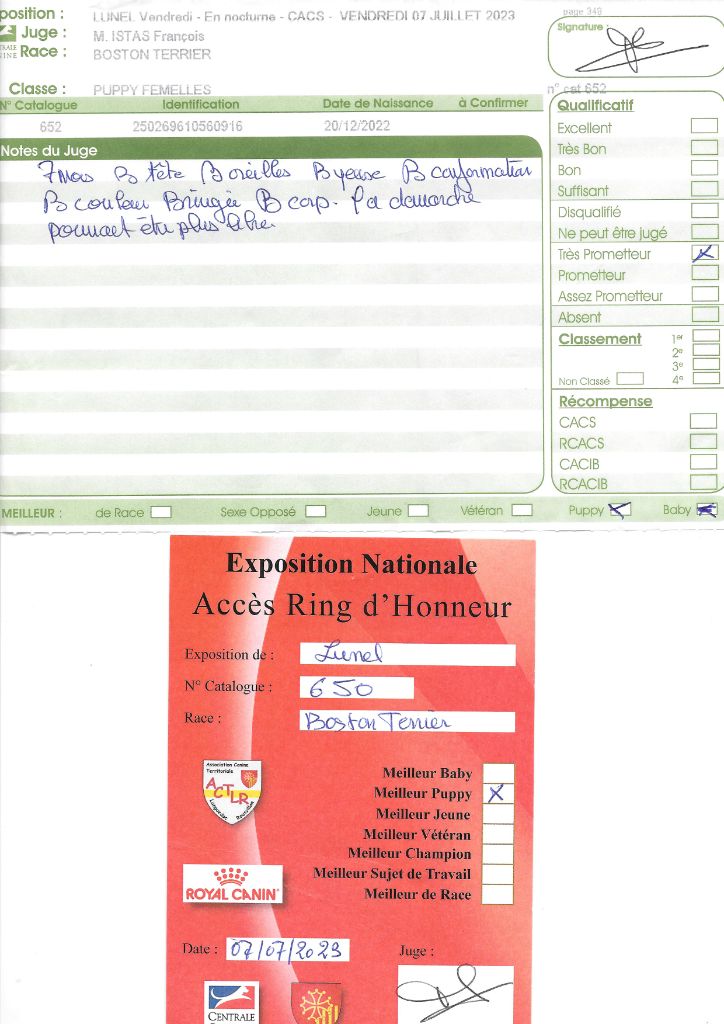 position : LUNEL Vendredi - En nocturne - CACS - VENDREDI 07 JUILLET 2023
page 349
Juge : M. ISTAS François
Race : BOSTON TERRIER
Signature :
Classe : PUPPY FEMELLES
n° cat 652
N° Catalogue Identification Date de Naissance à Confirmer
652 250269610560916 20/12/2022
Notes du Juge
7 mois B tête B oreilles B yeux B conformation
B couleur Bringée B cap. La démarche
pourrait être plus libre.
Qualificatif
Excellent
Très Bon
Bon
Suffisant
Disqualifié
Ne peut être jugé
Très Prometteur X
Prometteur
Assez Prometteur
Absent
Classement 1er
2e
3e
Non Classé 4e
Récompense
CACS
RCACS
CACIB
RCACIB
MEILLEUR : de Race Sexe Opposé Jeune Vétéran Puppy X Baby
Exposition Nationale
Accès Ring d'Honneur
Exposition de : Lunel
N° Catalogue : 650
Race : Boston Terrier
Association Canine
Territoriale
ACTLR
Languedoc Roussillon
Meilleur Baby
Meilleur Puppy X
Meilleur Jeune
Meilleur Vétéran
Meilleur Champion
Meilleur Sujet de Travail
Meilleur de Race
ROYAL CANIN
Date : 07/07/2023
Juge :
CENTRALE